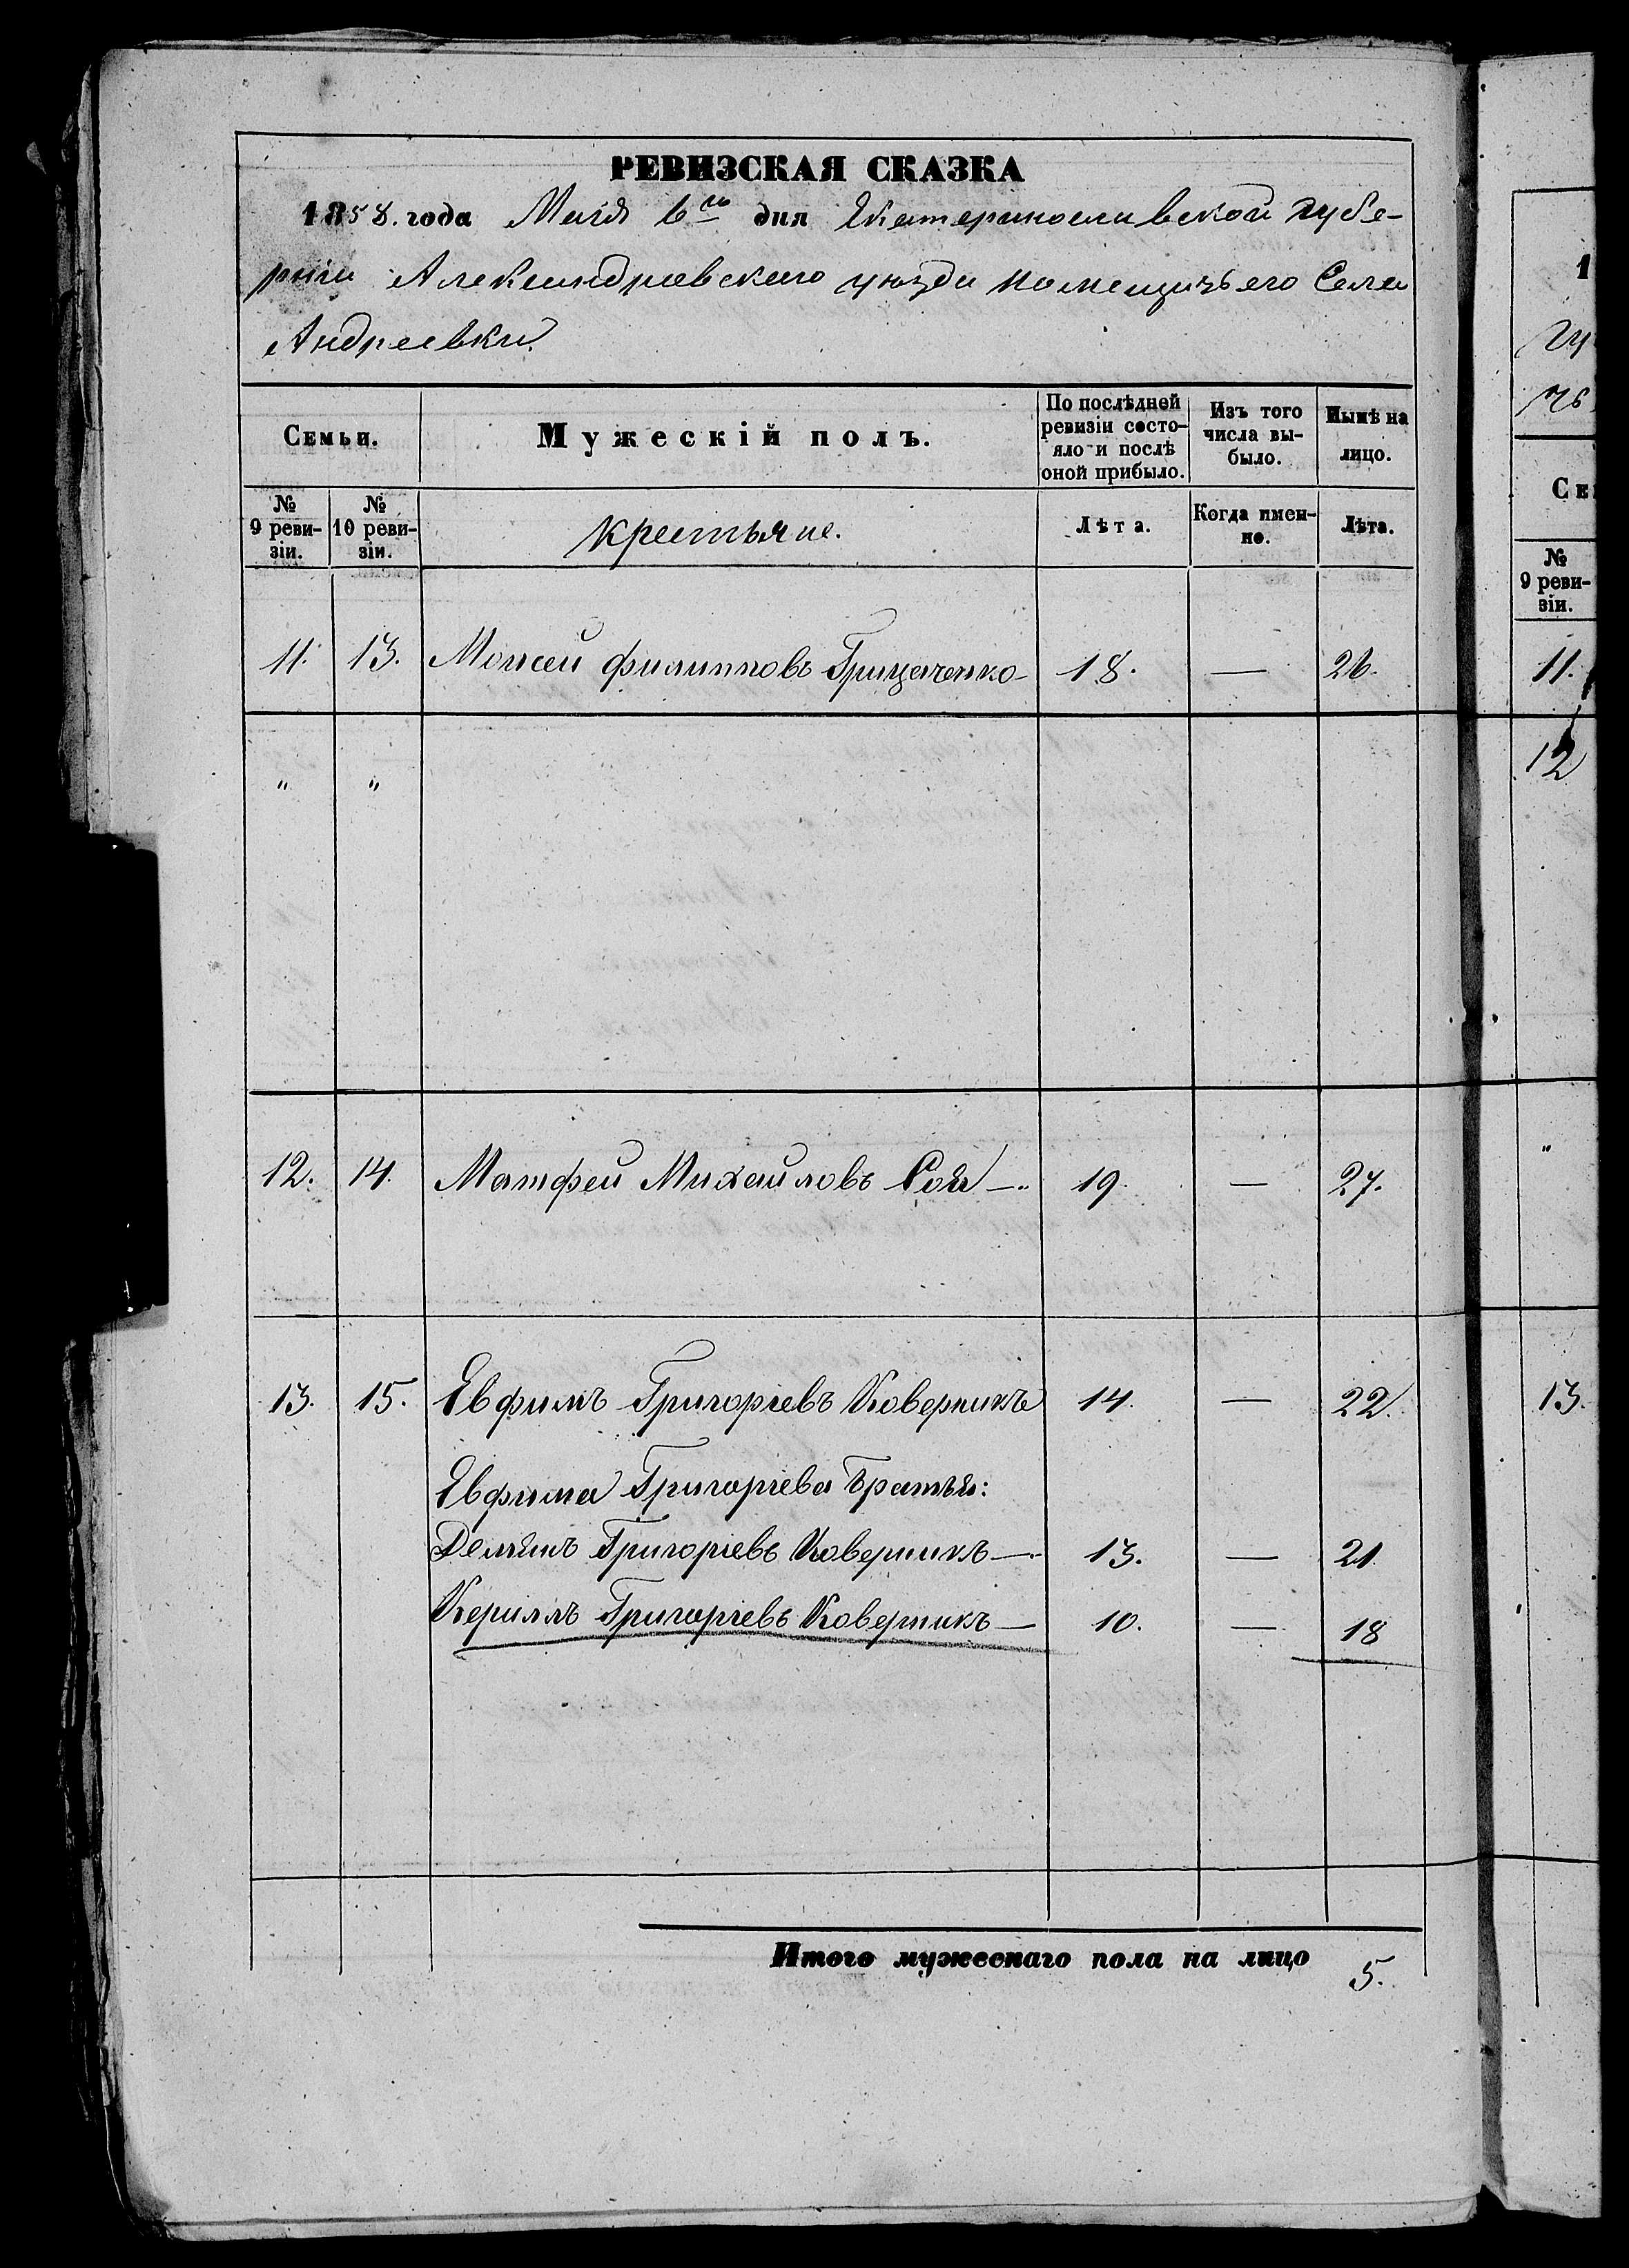 РЕВИЗСКАЯ СКАЗКА
1858. года Маія 6го дня Екатеринославской губе-
рніи Александровскаго уѣзда помещичьяго Села
Андреевки.
Семьи. Мужескій полъ. По послѣдней ревизіи состо-яло и послѣ оной прибыло. Изъ того числа вы-было. Нынѣ на лицо.
№ 9 реви-зіи. № 10 реви-зіи. крестьяне. Лѣта. Когда имен-но. Лѣта.
11. 13. Моисей Филипповъ Грицаченко 18. — 26.
" "
12. 14. Матфей Михайловъ Соя — 19. — 27.
13. 15. Евфимъ Григоріевъ Коверникъ 14. — 22.
Евфима Григоріева братья:
Демьянъ Григоріевъ Коверникъ — 13. — 21.
Керилъ Григоріевъ Коверникъ — 10. — 18
Итого мужескаго пола на лицо 5.
1
гу
чь
Се
№
9 реви-
зіи.
11.
12
"
13.